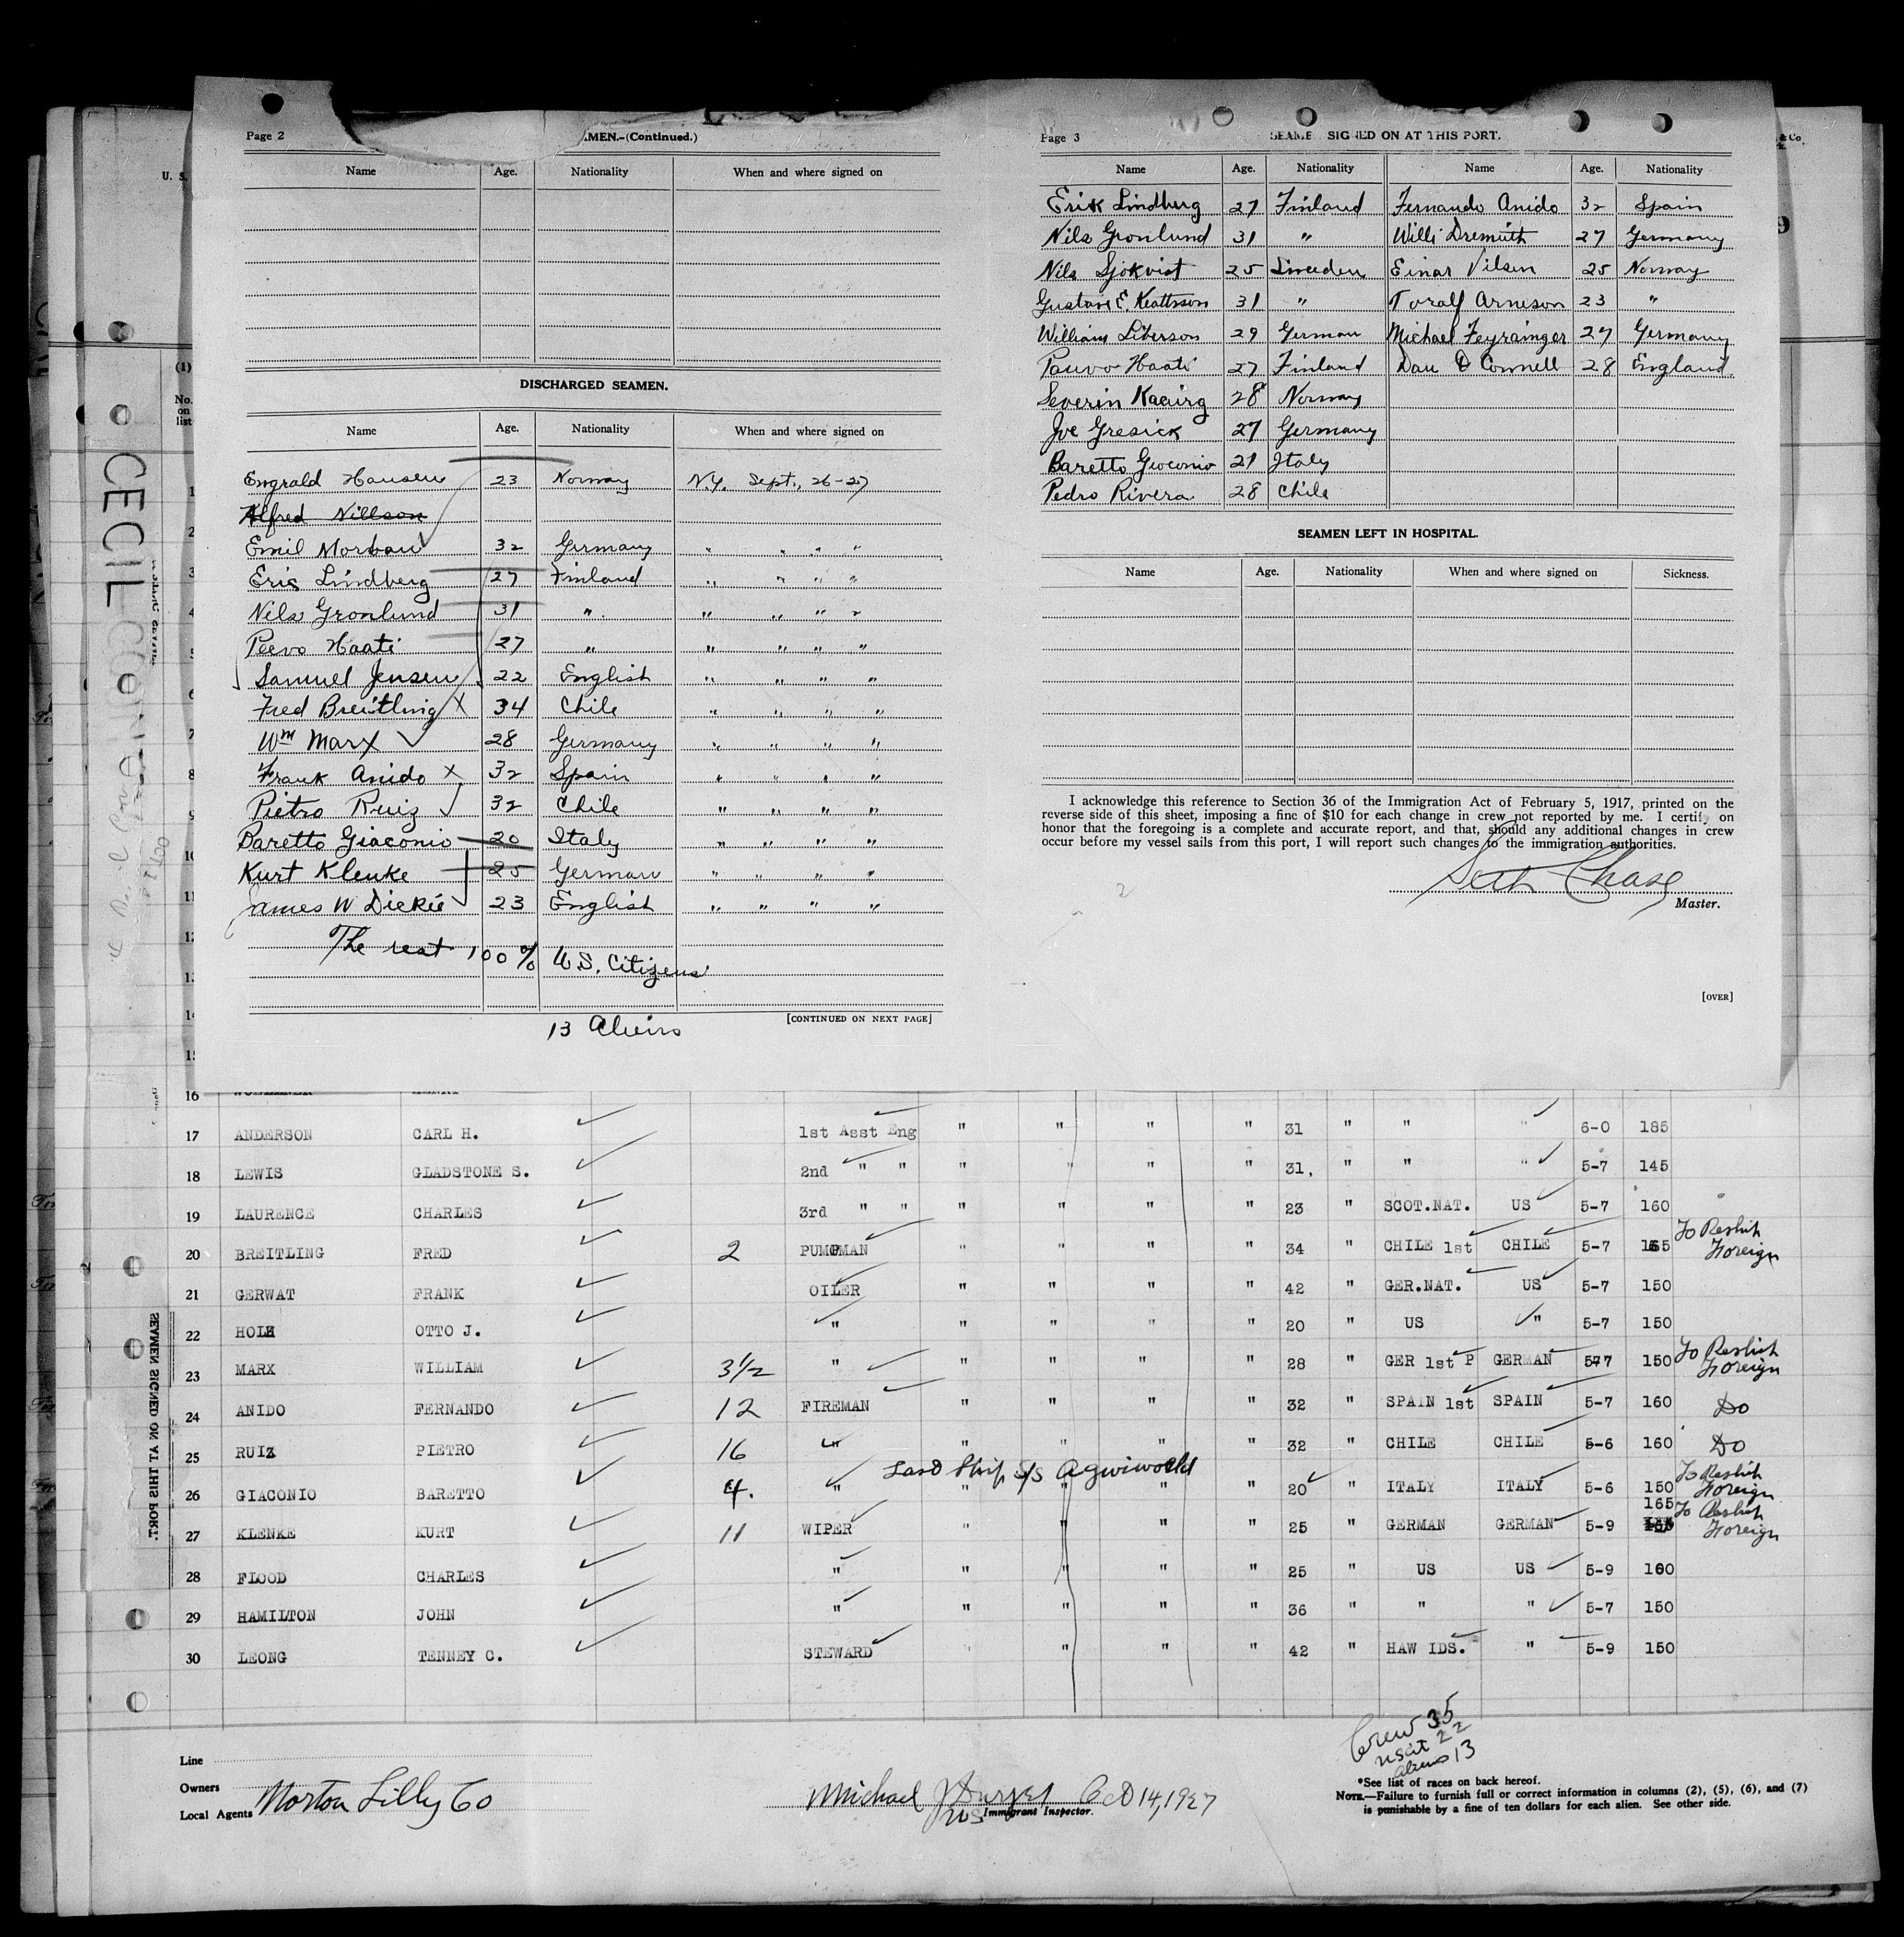 Page 2
AMEN.-(Continued.)
Name Age. Nationality When and where signed on
DISCHARGED SEAMEN.
Name Age. Nationality When and where signed on
Engrald Hansen 23 Norway N.Y. Sept., 26-27
Alfred Nillson
Emil Morban 32 Germany " " " "
Eric Lindberg 27 Finland " " " "
Nils Gronlund 31 " " " " "
Peevo Haati 27 " " " " "
Samuel Jensen 22 English " " " "
Fred Breitling X 34 Chile " " " "
Wm Marx 28 Germany " " " "
Frank Anido X 32 Spain " " " "
Pietro Ruiz 32 Chile " " " "
Baretto Giaconio 20 Italy " " " "
Kurt Klenke 25 German " " " "
James W Dickie 23 English " " " "
The rest 100% U.S. Citizens
[CONTINUED ON NEXT PAGE]
13 Aliens
Page 3
SEAME SIGNED ON AT THIS PORT.
Name Age. Nationality Name Age. Nationality
Erik Lindberg 27 Finland Fernando Anido 32 Spain
Nils Gronlund 31 " Willi Dremuth 27 Germany
Nils Sjokvist 25 Sweeden Einar Nilsen 25 Norway
Gustave E. Keattsson 31 " Toralf Arneson 23 "
William Liberson 29 German Michael Feyrainger 27 Germany
Pauvo Haati 27 Finland Dan O Connell 28 England
Severin Kaaurg 28 Norway
Joe Gresick 27 Germany
Baretto Gioconio 21 Italy
Pedro Rivera 28 Chile
SEAMEN LEFT IN HOSPITAL.
Name Age. Nationality When and where signed on Sickness.
I acknowledge this reference to Section 36 of the Immigration Act of February 5, 1917, printed on the
reverse side of this sheet, imposing a fine of $10 for each change in crew not reported by me. I certify on
honor that the foregoing is a complete and accurate report, and that, should any additional changes in crew
occur before my vessel sails from this port, I will report such changes to the immigration authorities.
Seth Chase
Master.
[OVER]
U. S.
& Co.
9
(1)
No. on list
CECIL COUNTY
1
2
3
4
5
6
7
8
9
10
11
12
13
14
15
16
17 ANDERSON CARL H. 1st Asst Eng " " " " 31 " " " 6-0 185
18 LEWIS GLADSTONE S. 2nd " " " " " " 31, " " " 5-7 145
19 LAURENCE CHARLES 3rd " " " " " " 23 " SCOT.NAT. US 5-7 160
20 BREITLING FRED 2 PUMPMAN " " " " 34 " CHILE 1st CHILE 5-7 165 To Reship Foreign
21 GERWAT FRANK OILER " " " " 42 " GER.NAT. US 5-7 150
22 HOLZ OTTO J. " " " " " 20 " US " 5-7 150
23 MARX WILLIAM 3½ " " " " " 28 " GER 1st P GERMAN 5-7 150 To Reship Foreign
24 ANIDO FERNANDO 12 FIREMAN " " " " 32 " SPAIN 1st SPAIN 5-7 160 Do
25 RUIZ PIETRO 16 " " " " " 32 " CHILE CHILE 5-6 160 Do
Last Ship S/S Agwiworld
26 GIACONIO BARETTO 4. " " " " " 20 " ITALY ITALY 5-6 150 To Reship Foreign
27 KLENKE KURT 11 WIPER " " " " 25 " GERMAN GERMAN 5-9 165 To Reship Foreign
28 FLOOD CHARLES " " " " " 25 " US US 5-9 160
29 HAMILTON JOHN " " " " " 36 " " " 5-7 150
30 LEONG TENNEY C. STEWARD " " " " 42 " HAW IDS. " 5-9 150
SEAMEN SIGNED ON AT THIS PORT.
Crew 35
uscit 22
aliens 13
Line
Owners
Local Agents Norton Lilly Co
Michael J Oct 14, 1927
US Immigrant Inspector.
*See list of races on back hereof.
NOTE.—Failure to furnish full or correct information in columns (2), (5), (6), and (7)
is punishable by a fine of ten dollars for each alien. See other side.